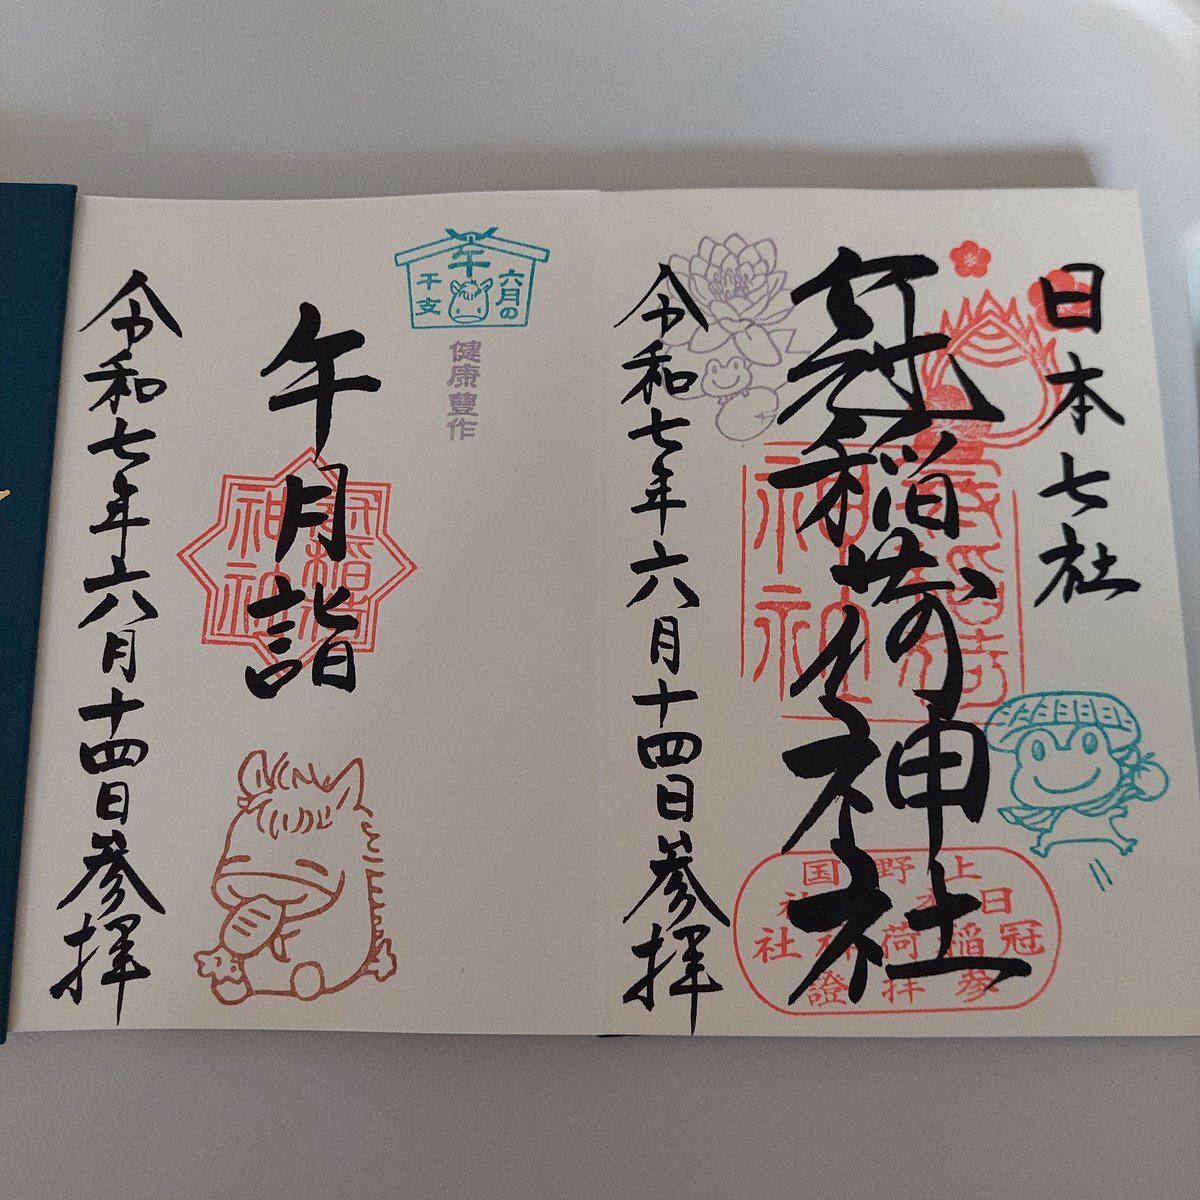 日本七社
冠稲荷神社
令和七年六月十四日参拝
冠稲荷
神社
上野国
日本七社
冠稲荷神社
参拝證
六月の
午
干支
健康豊作
午月詣
冠稲荷
神社
令和七年六月十四日参拝